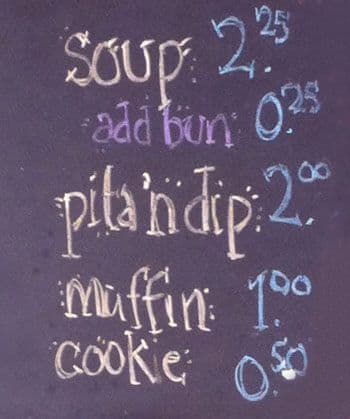 soup: 2.25
add bun: 0.25
pita'n dip: 2.00
muffin: 1.00
cookie: 0.50